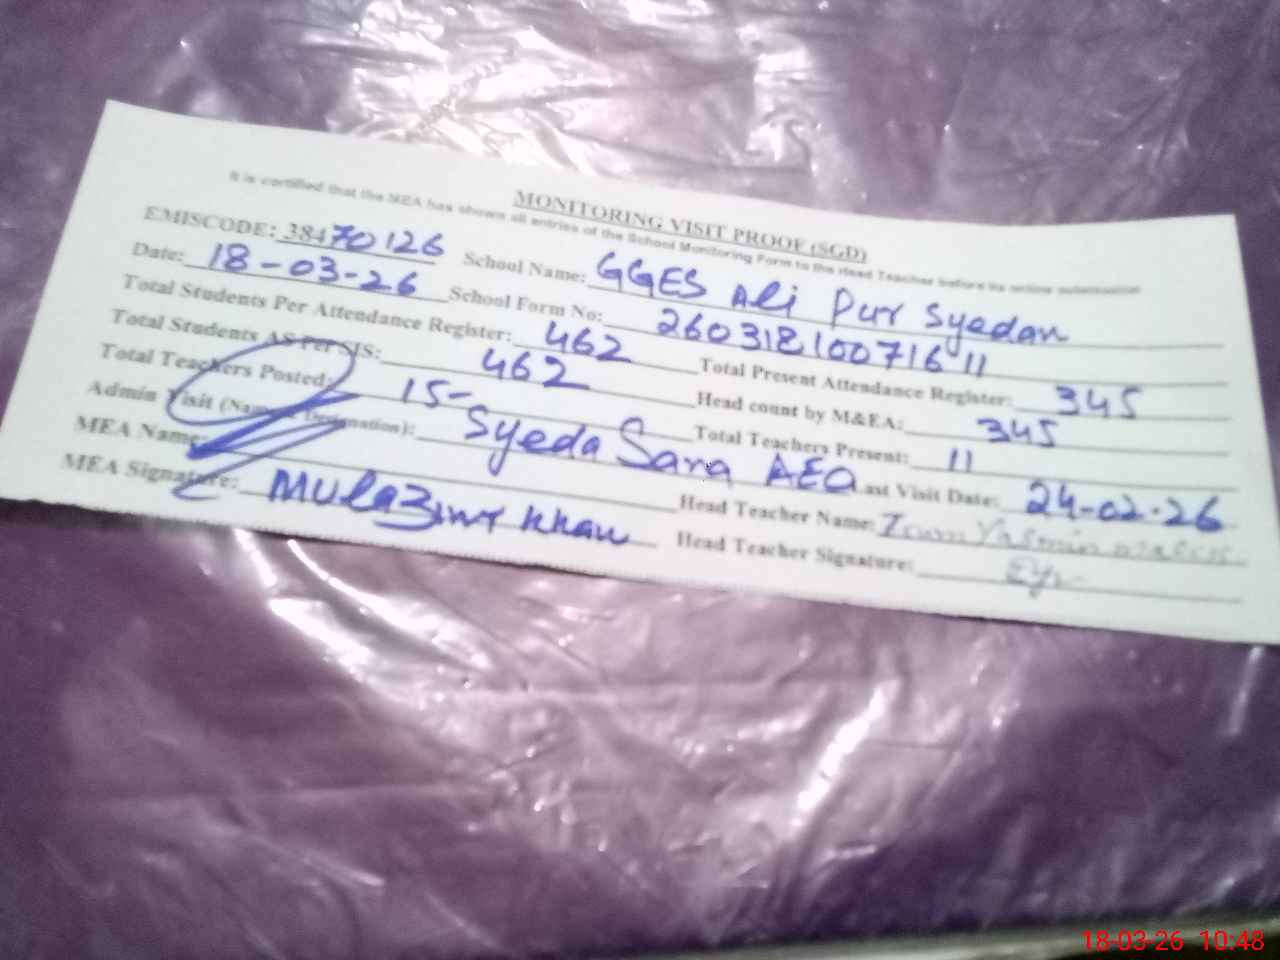 MONITORING VISIT PROOF (SGD)
It is certified that the MEA has shown all entries of the School Monitoring Form to the Head Teacher before its online submission
EMISCODE: 38470126 School Name: GGES Ali Pur Syedan
Date: 18-03-26 School Form No: 26031810071611
Total Students Per Attendance Register: 462 Total Present Attendance Register: 345
Total Students AS Per SIS: 462 Head count by M&EA: 345
Total Teachers Posted: 15- Total Teachers Present: 11
Admin Visit (Name & Designation): Syeda Sara AEO Last Visit Date: 24-02-26
MEA Name: Head Teacher Name: Yasmin
MEA Signature: Khan Head Teacher Signature:
18-03-26 10:48